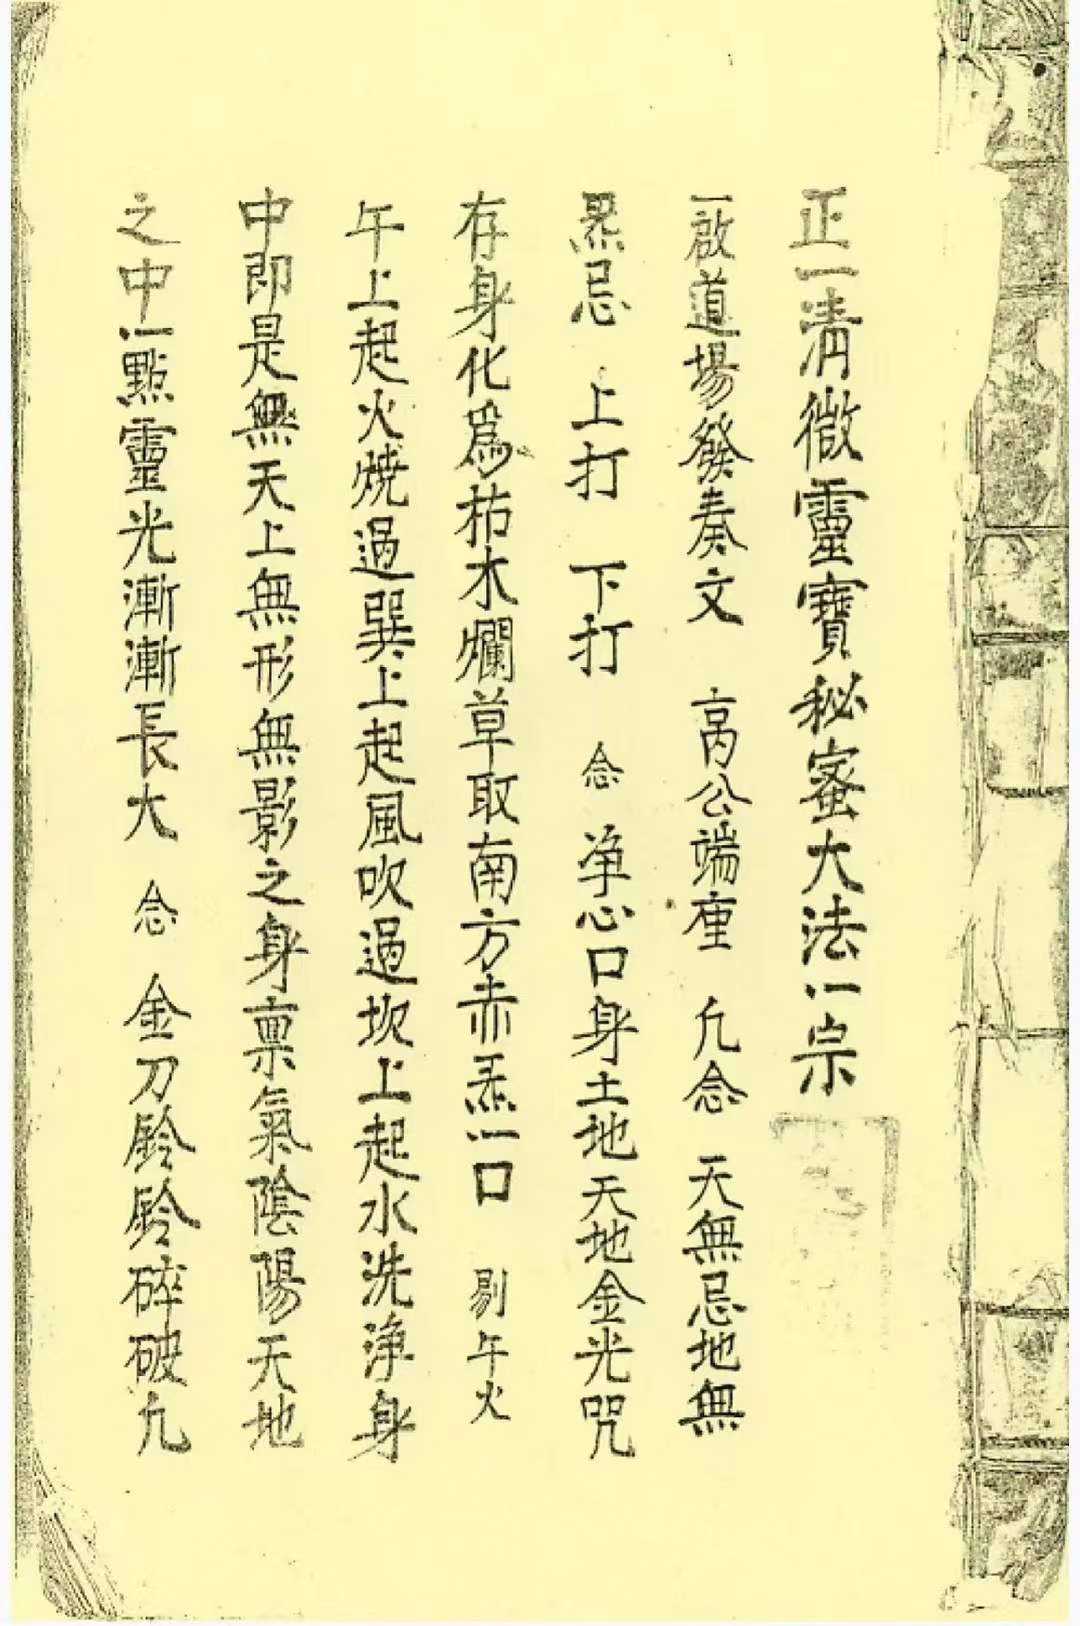 正一清微靈寶秘蜜大法一宗
一啟道場發奏文 高公端座 凢念 天無忌地無
炁忌 上打 下打 念 净心口身土地天地金光咒
存身化為枯木爛草取南方赤炁一口 剔午火
午上起火燒過巽上起風吹過坎上起水洗净身
中即是無天上無形無影之身禀氣陰陽天地
之中一點靈光漸漸長大 念 金刀鈴鈴碎破凢